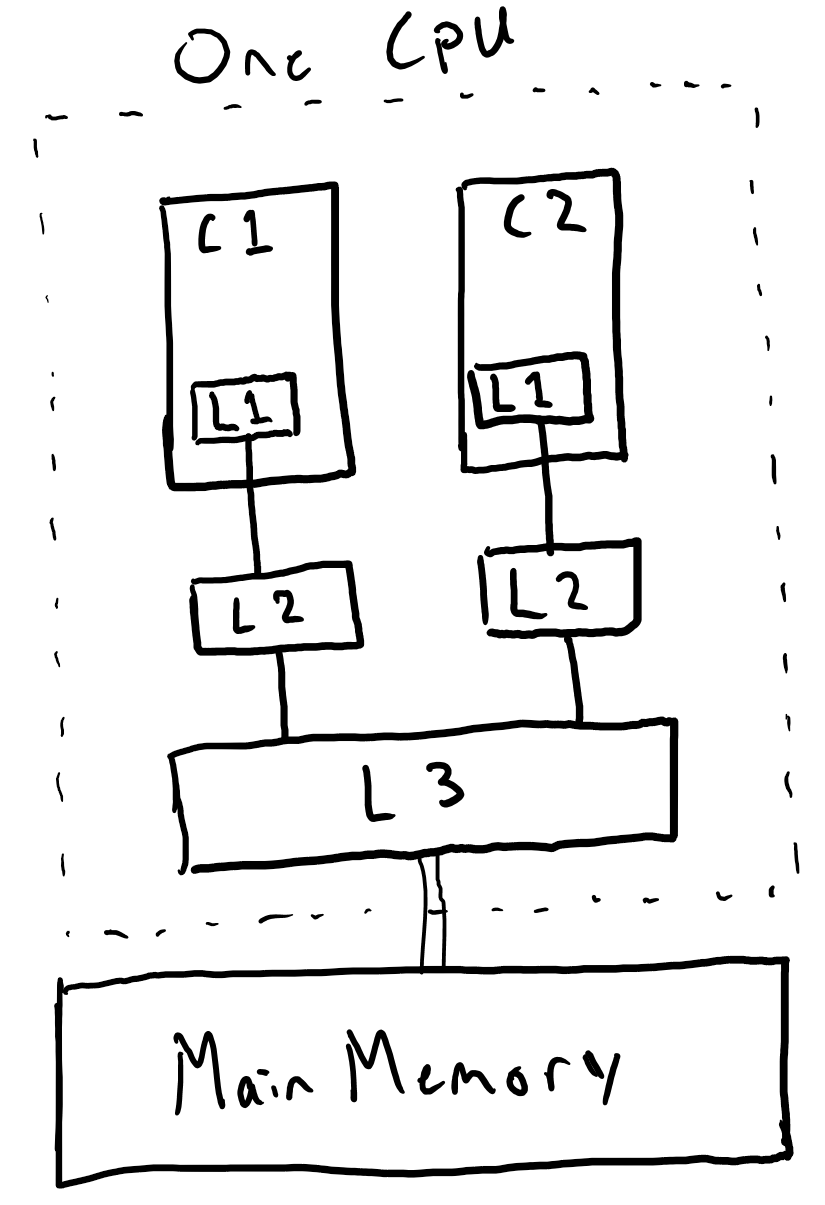 One CPU
C1
C2
L1
L1
L2
L2
L3
Main Memory